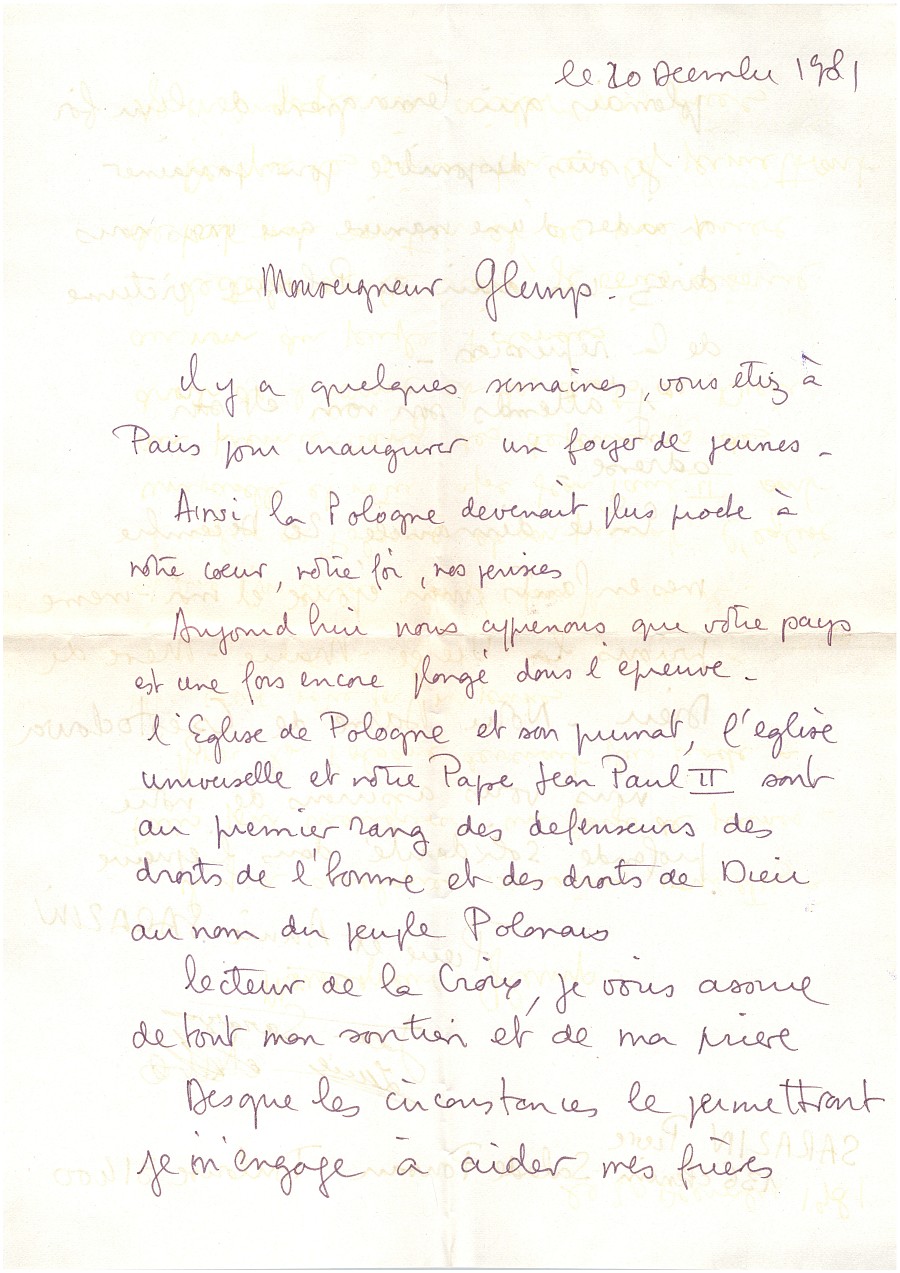 le 20 Decembre 1981
Monseigneur Glemp.
Il y a quelques semaines, vous étiez à
Paris pour inaugurer un foyer de jeunes -
Ainsi la Pologne devenait plus proche à
notre coeur, notre foi, nos pensées
Aujourd'hui nous apprenons que votre pays
est une fois encore plongé dans l'épreuve -
l'Eglise de Pologne et son primat, l'eglise
universelle et notre Pape Jean Paul II sont
au premier rang des defenseurs des
droits de l'homme et des droits de Dieu
au nom du peuple Polonais
lecteur de la Croix, je vous assure
de tout mon soutien et de ma prière
Des que les circonstances le permettront
je m'engage à aider mes frères